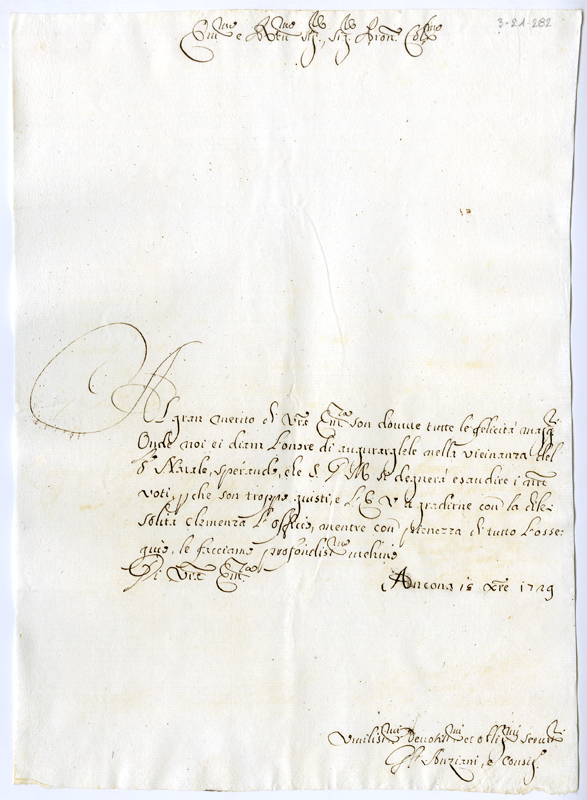 3-21-282
Em.mo e R.mo Sig.r, Sig.r Pron. Col.mo
Al gran merito di Vra Em.za son dovute tutte le felicità magg.ri
Onde noi ci diam l'onore di augurarglele nella vicinanza del
S. Natale, sperando, che S. D. M. si degnerà esaudire i nri
voti, p che son troppo giusti, e l'E. V. a gradirne con la di lei
solita clemenza l'offizio, mentre con pienezza di tutto l'osse-
quio, le facciamo profondiss.mo inchino
Di Vra Em.za
Ancona 18 Xbre 1729
Umiliss.mi Devotiss.mi et obblig.mi Servit.ri
Gli Anziani, e Consig.